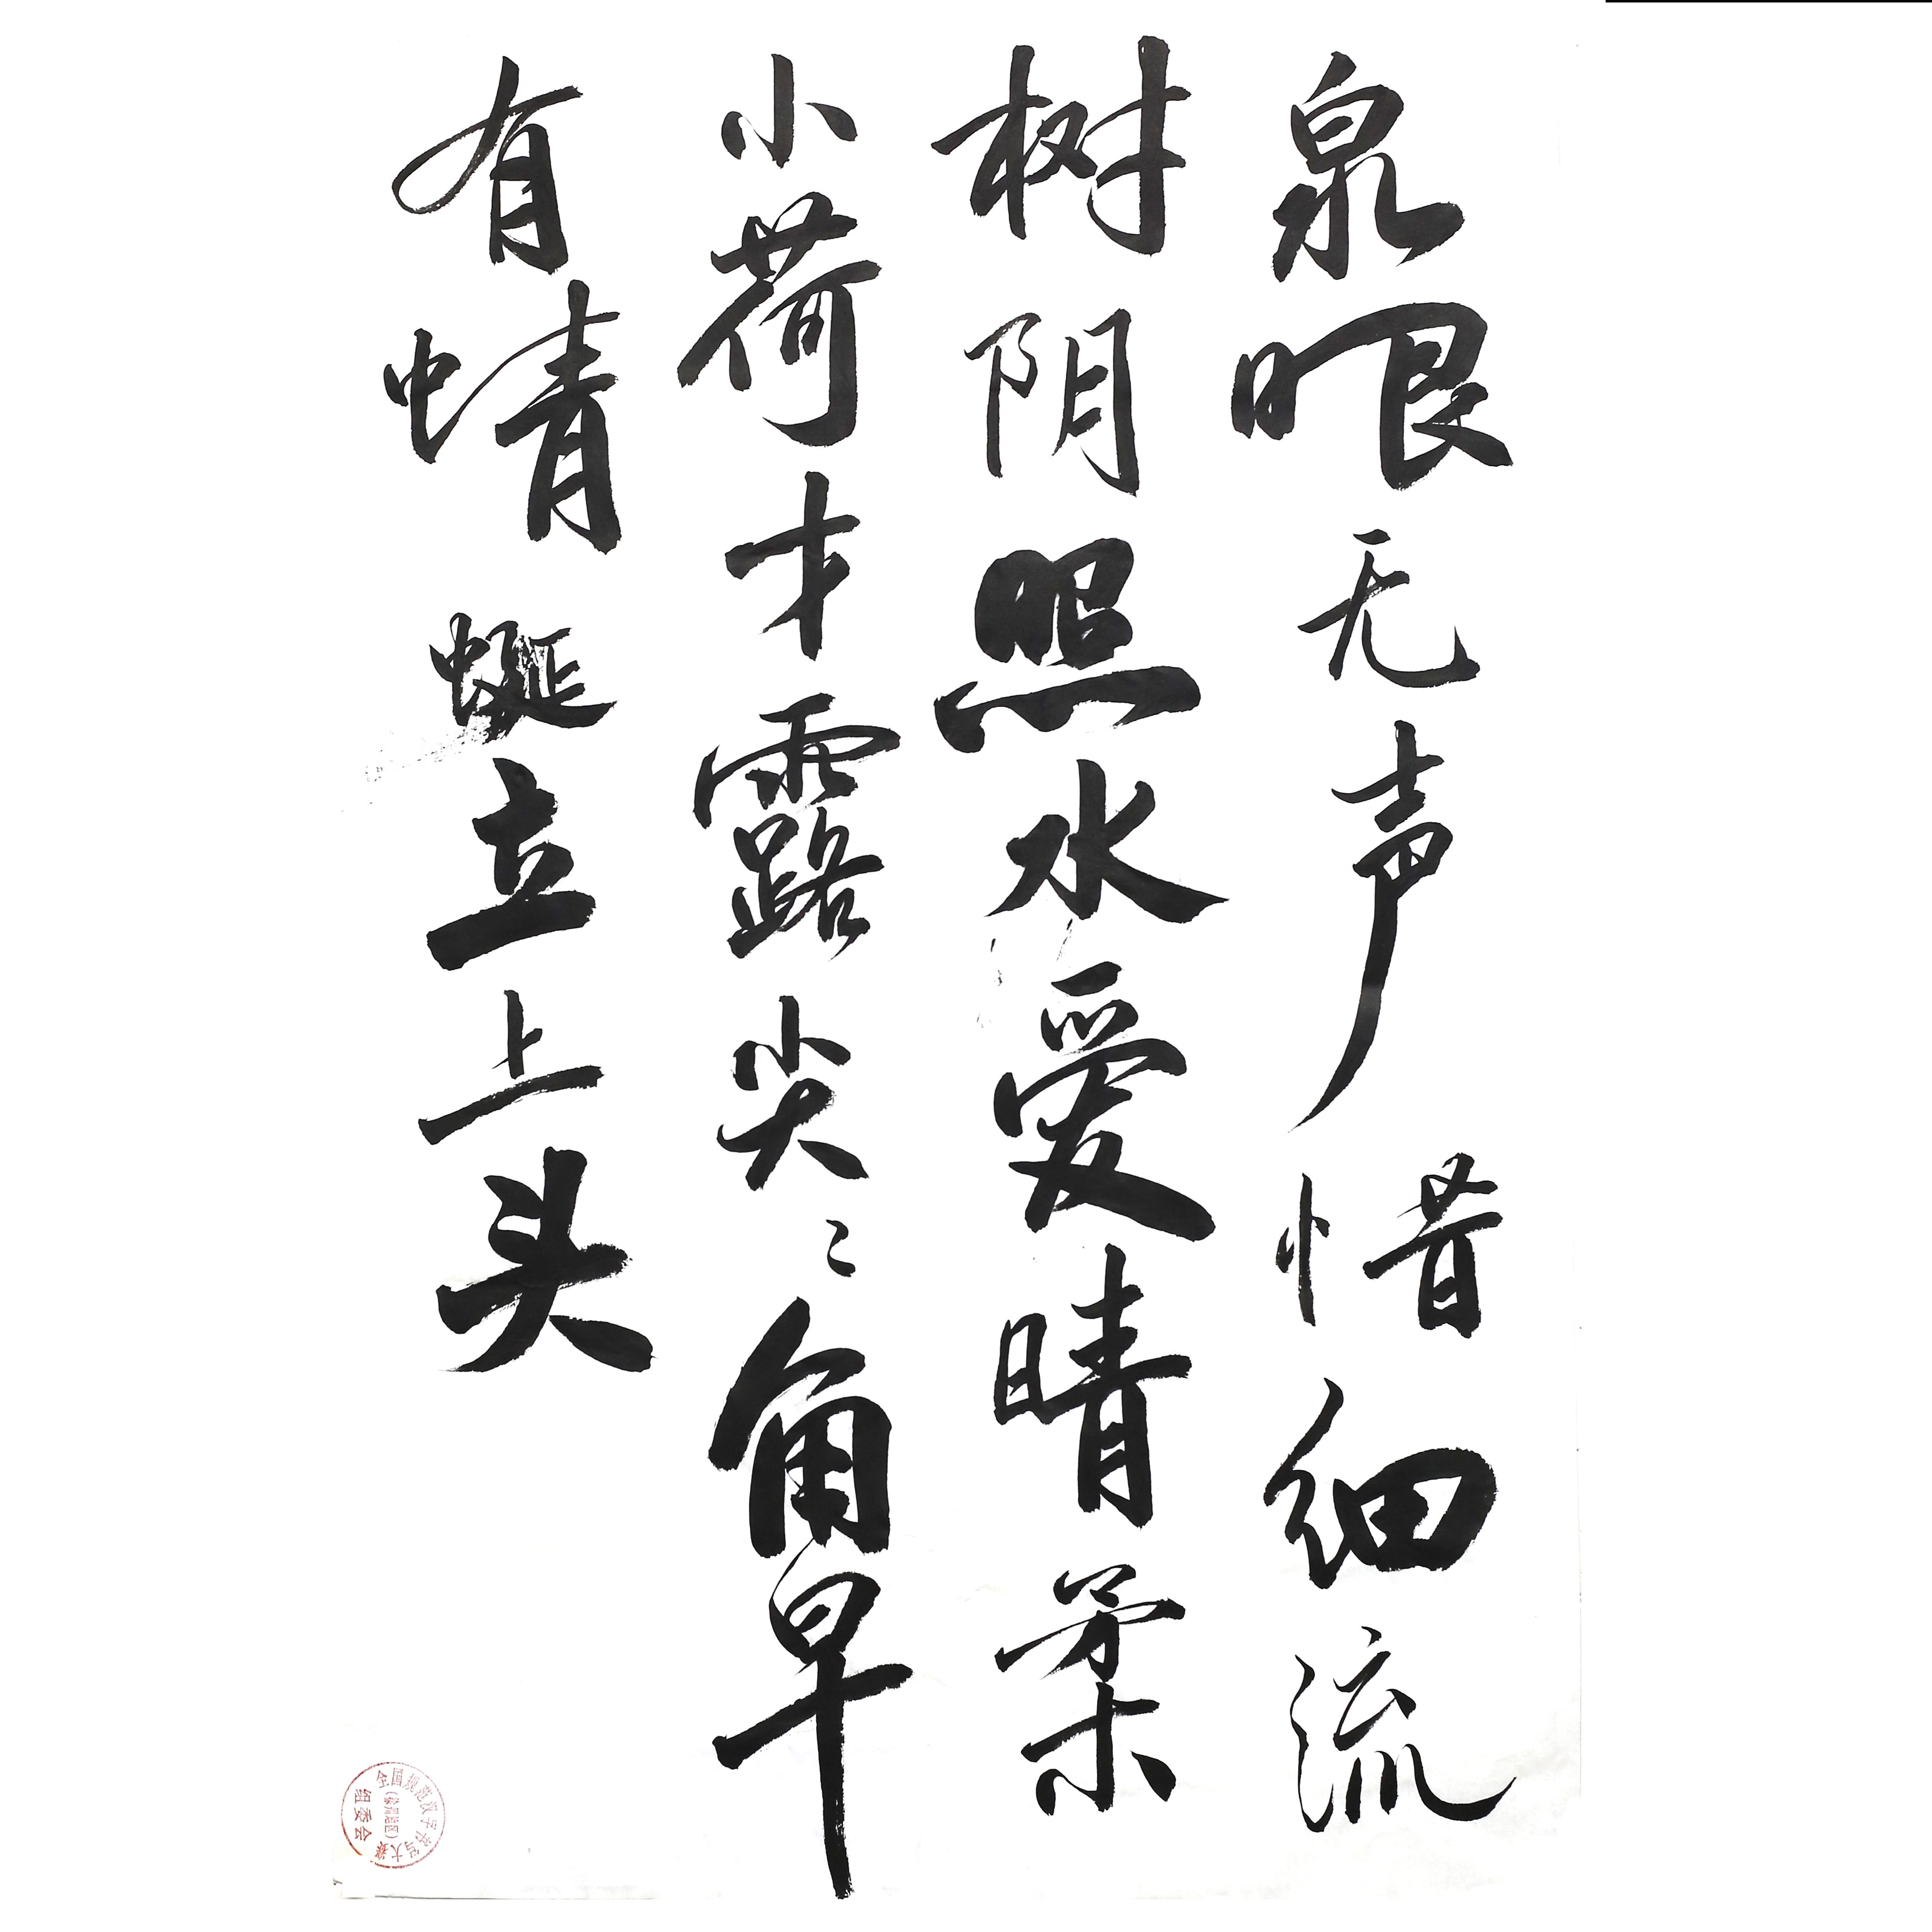 泉眼无声惜细流
树阴照水爱晴柔
小荷才露尖〻角早
有蜻蜓立上头
全国规范汉字书写大赛
组委会